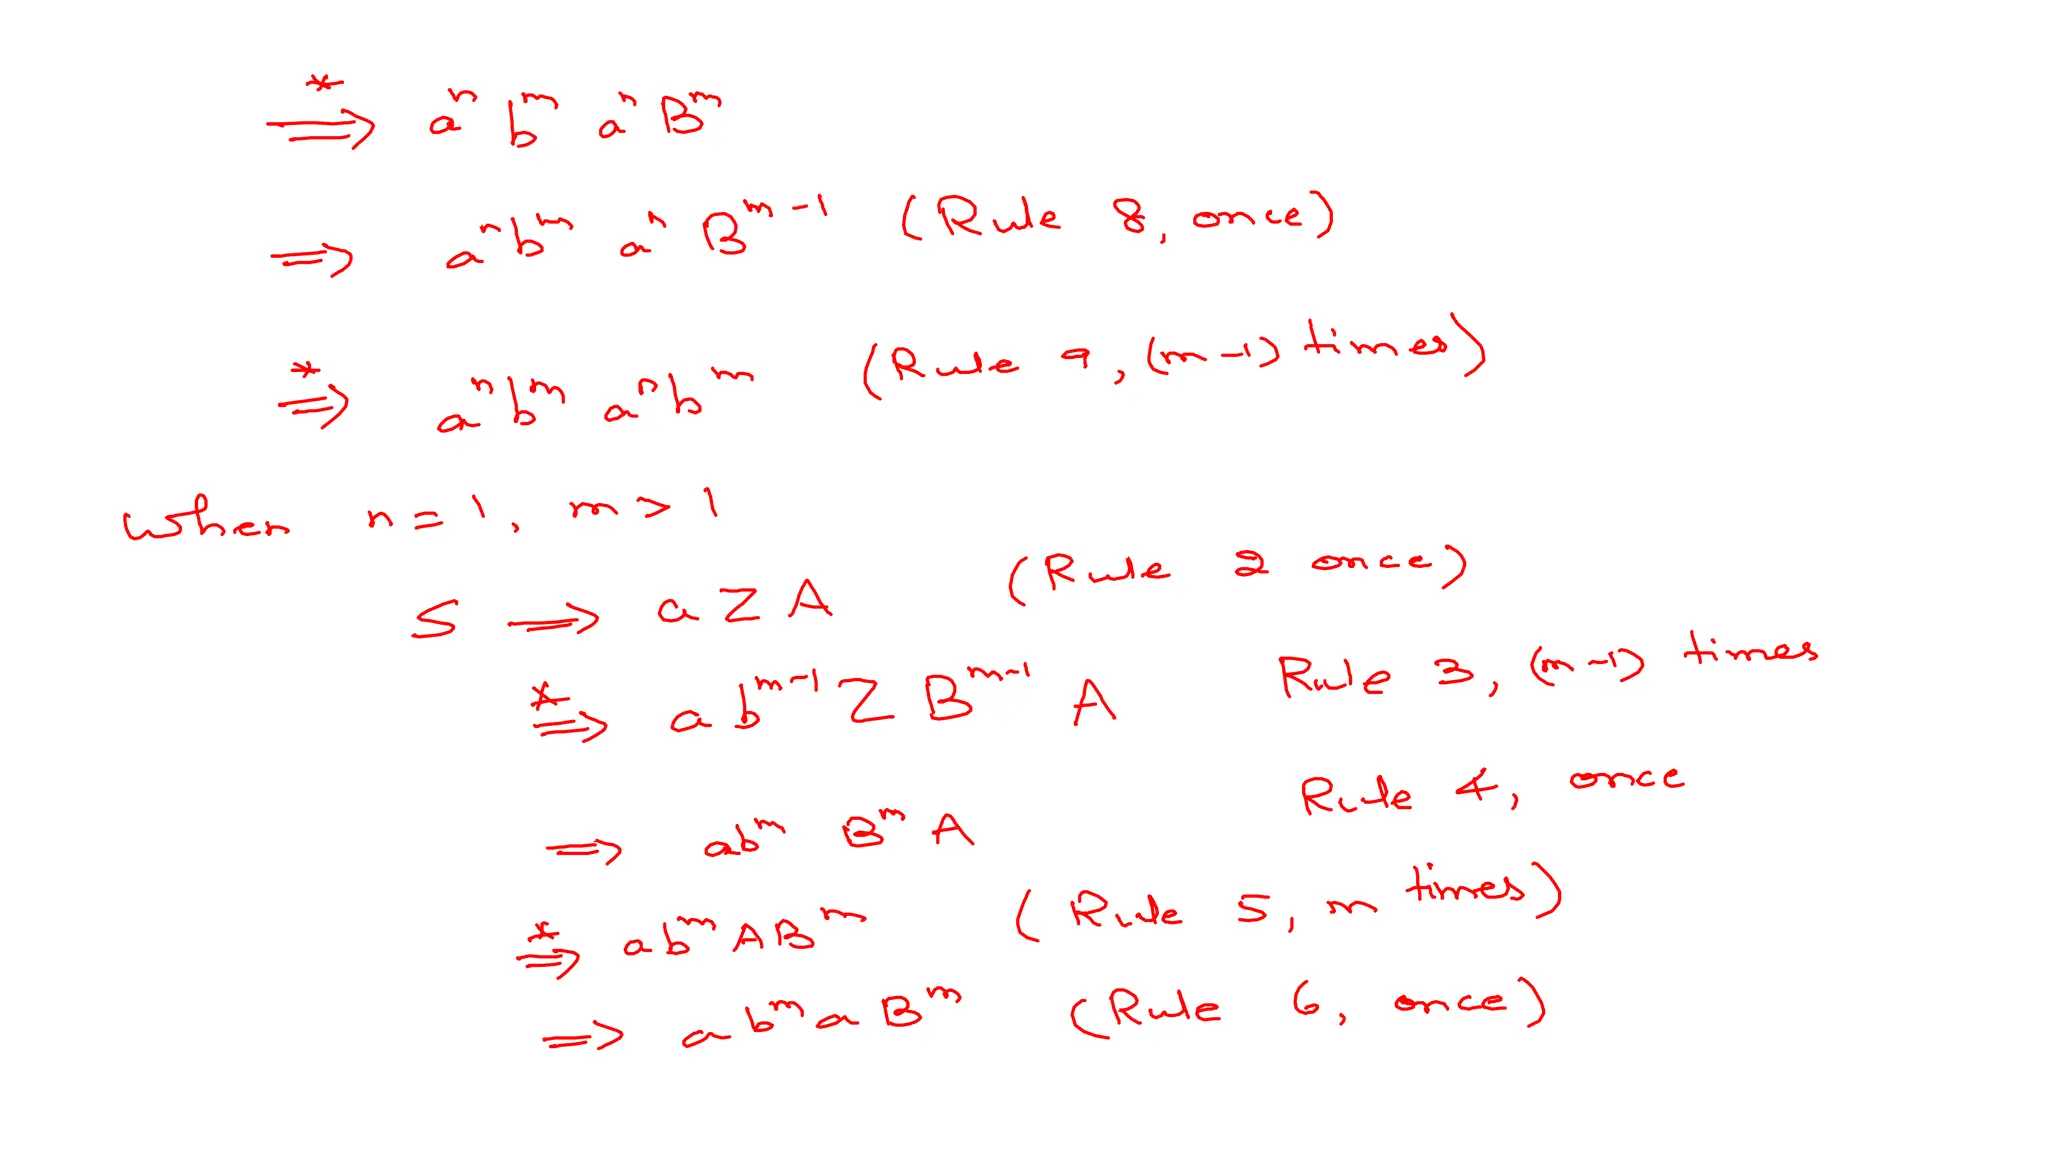 *⟹ aⁿ bᵐ aⁿ Bᵐ
⟹ aⁿ bᵐ aⁿ Bᵐ⁻¹ (Rule 8, once)
*⟹ aⁿ bᵐ aⁿ bᵐ (Rule 9, (m-1) times)
When n = 1, m > 1
S ⟹ a Z A (Rule 2 once)
*⟹ a bᵐ⁻¹ Z Bᵐ⁻¹ A Rule 3, (m-1) times
⟹ abᵐ Bᵐ A Rule 4, once
*⟹ abᵐ A Bᵐ (Rule 5, m times)
⟹ a bᵐ a Bᵐ (Rule 6, once)